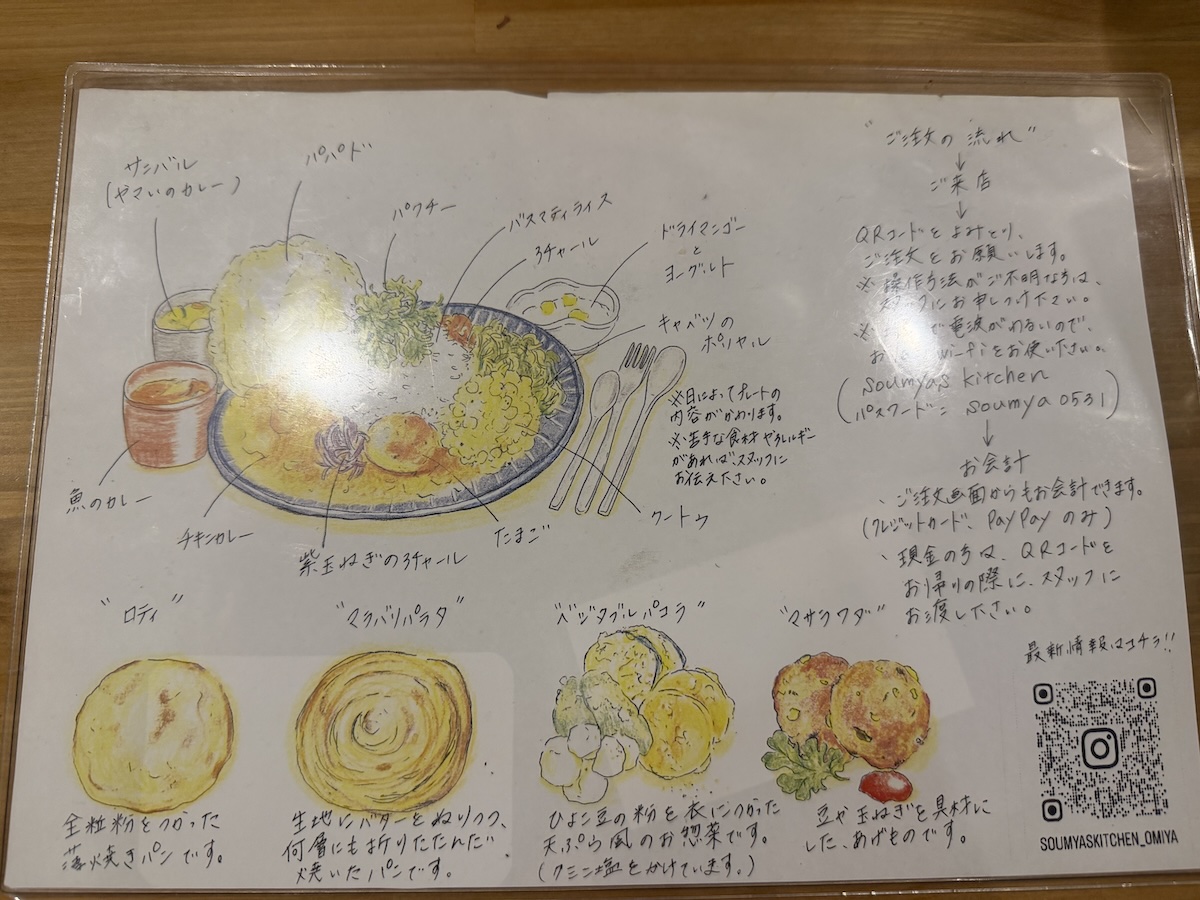 サンバル
(やさいのカレー)
パパド
パクチー
バスマティライス
アチャール
ドライマンゴー
と
ヨーグルト
キャベツの
ポリヤル
※日によってプレートの
内容がかわります。
※苦手な食材やアレルギー
があれば、スタッフに
お伝え下さい。
魚のカレー
チキンカレー
紫玉ねぎのアチャール
たまご
クートゥ
"ご注文の流れ"
↓
ご来店
↓
QRコードをよみとり、
ご注文をお願いします。
※操作方法がご不明な方は、
スタッフにお申しつけ下さい。
※ で電波がわるいので、
お Wi-fiをお使いください。
(soumyas kitchen
パスワード: soumya0531)
↓
お会計
、ご注文画面からもお会計できます。
(クレジットカード、PayPayのみ)
、現金の方は、QRコードを
お帰りの際に、スタッフに
お渡し下さい。
"ロティ"
全粒粉をつかった
薄焼きパンです。
"マラバリパラタ"
生地にバターをぬりつつ、
何層にも折りたたんだ
焼いたパンです。
"ベジタブルパコラ"
ひよこ豆の粉を衣につかった
天ぷら風のお惣菜です。
(クミン塩をかけています。)
"マサラワダ"
豆や玉ねぎを具材に
した、あげものです。
最新情報はコチラ!!
SOUMYASKITCHEN_OMIYA